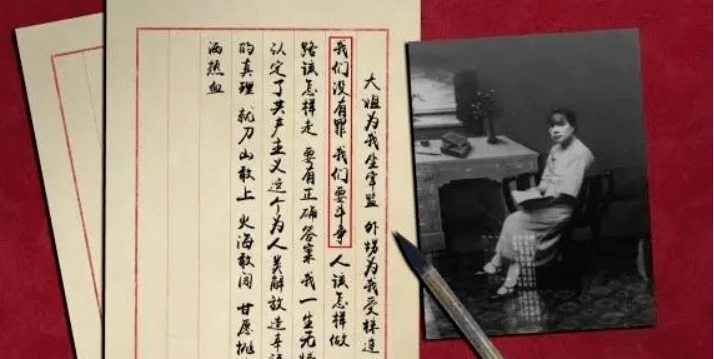 大姐为我坐牢监 外甥为我受株连
我们没有罪 我们要斗争 人该怎样做
路该怎样走 要有正确答案 我一生无
认定了共产主义这个为人类解放造幸
的真理 就刀山敢上 火海敢闯 甘愿抛
洒热血